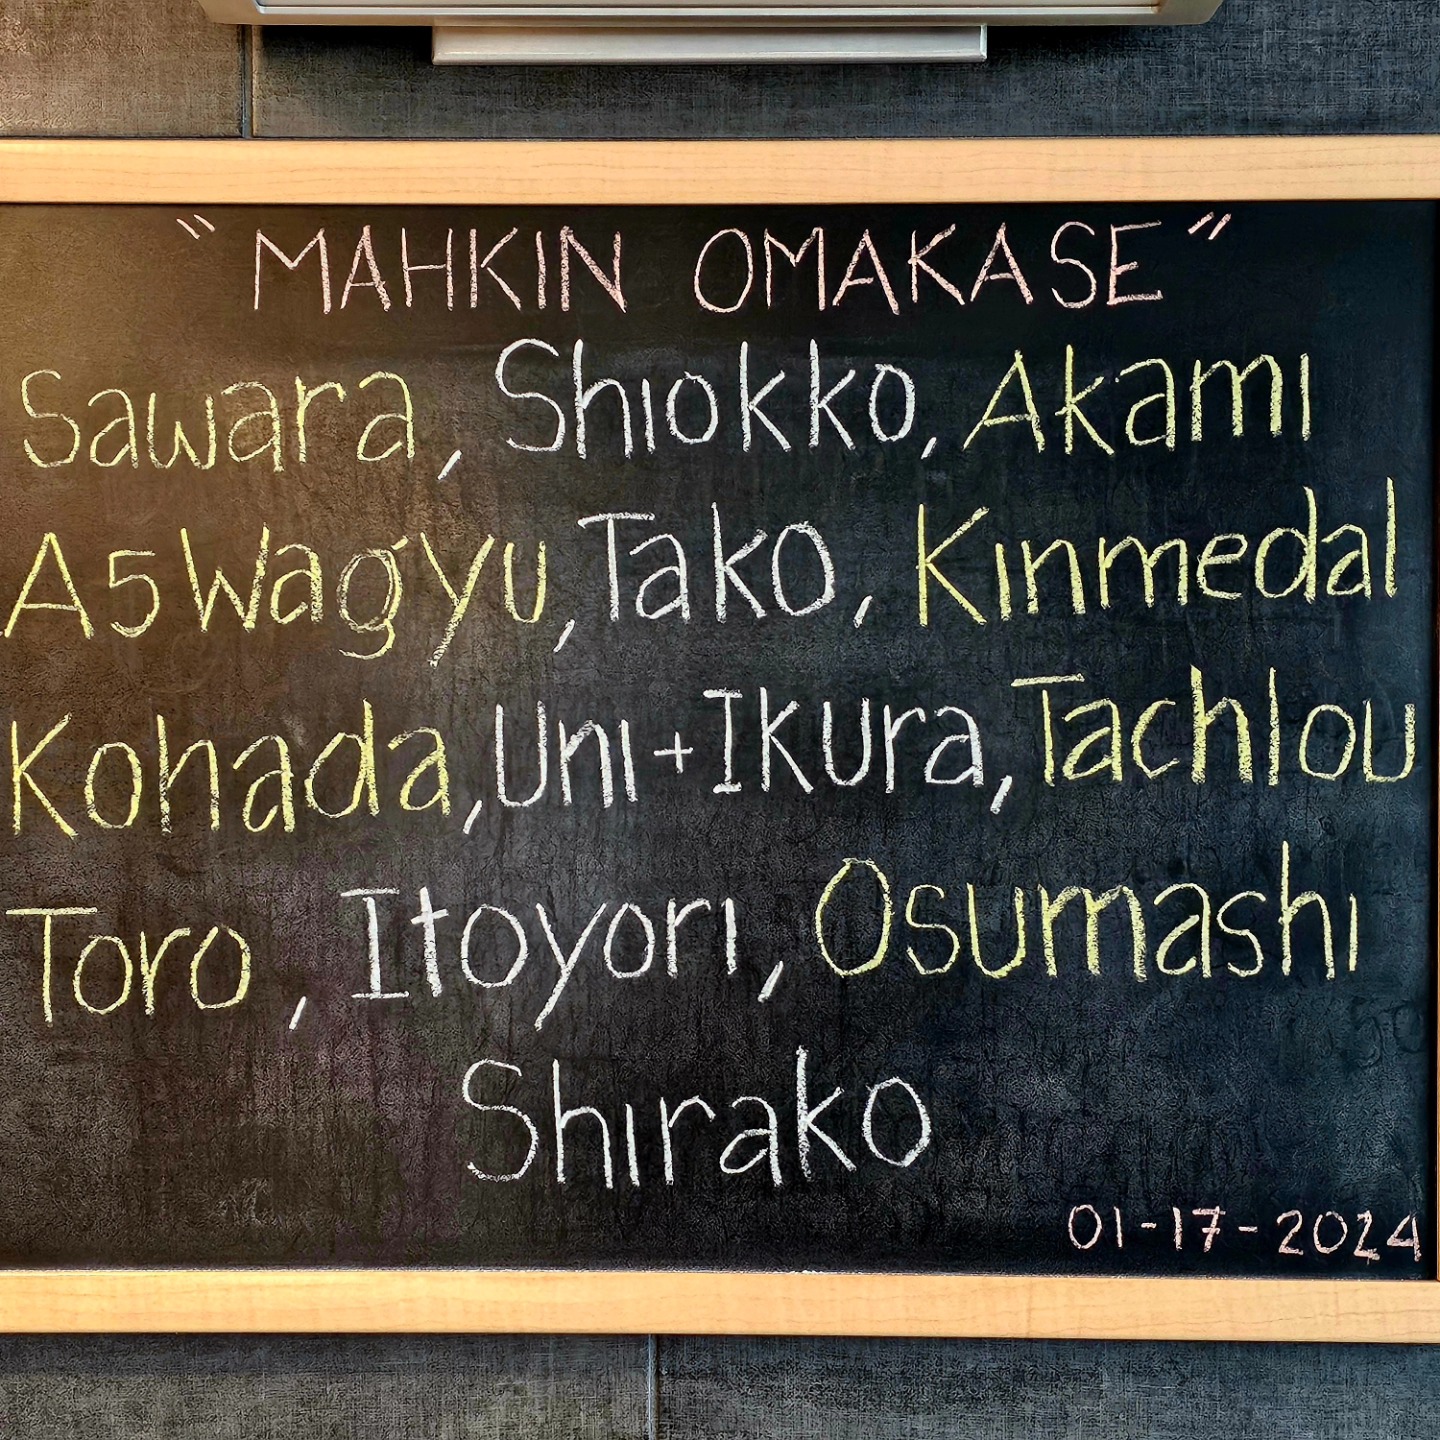 "MAHKIN OMAKASE"
Sawara, Shiokko, Akami
A5 Wagyu, Tako, Kinmedal
Kohada, Uni + Ikura, Tachiou
Toro, Itoyori, Osumashi
Shirako
01-17-2024